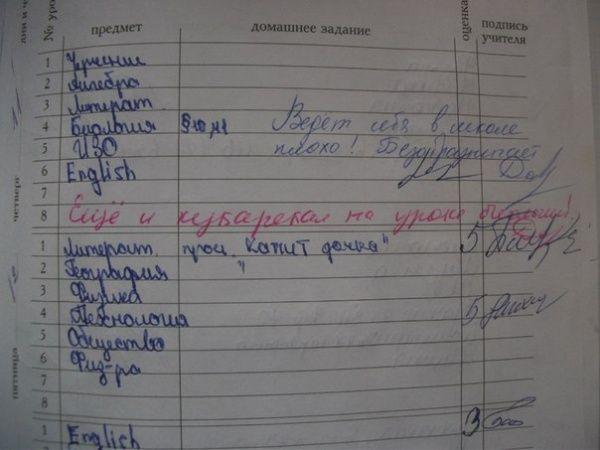 дни и ч
№ уро предмет домашнее задание оценка подпись учителя
1 Черчение
2 Алгебра
3 Литерат.
4 Биология §10 Ведёт себя в школе
5 ИЗО плохо! Безобразничает
6 English
7
8 Ещё и кукарекал на уроке биологии!
четверг
1 Литерат. проч. "Капит дочка" 5
2 География "
3 Физика
4 Технология 5
5 Общество
6 Физ-ра
7
8
пятница
1 English 3